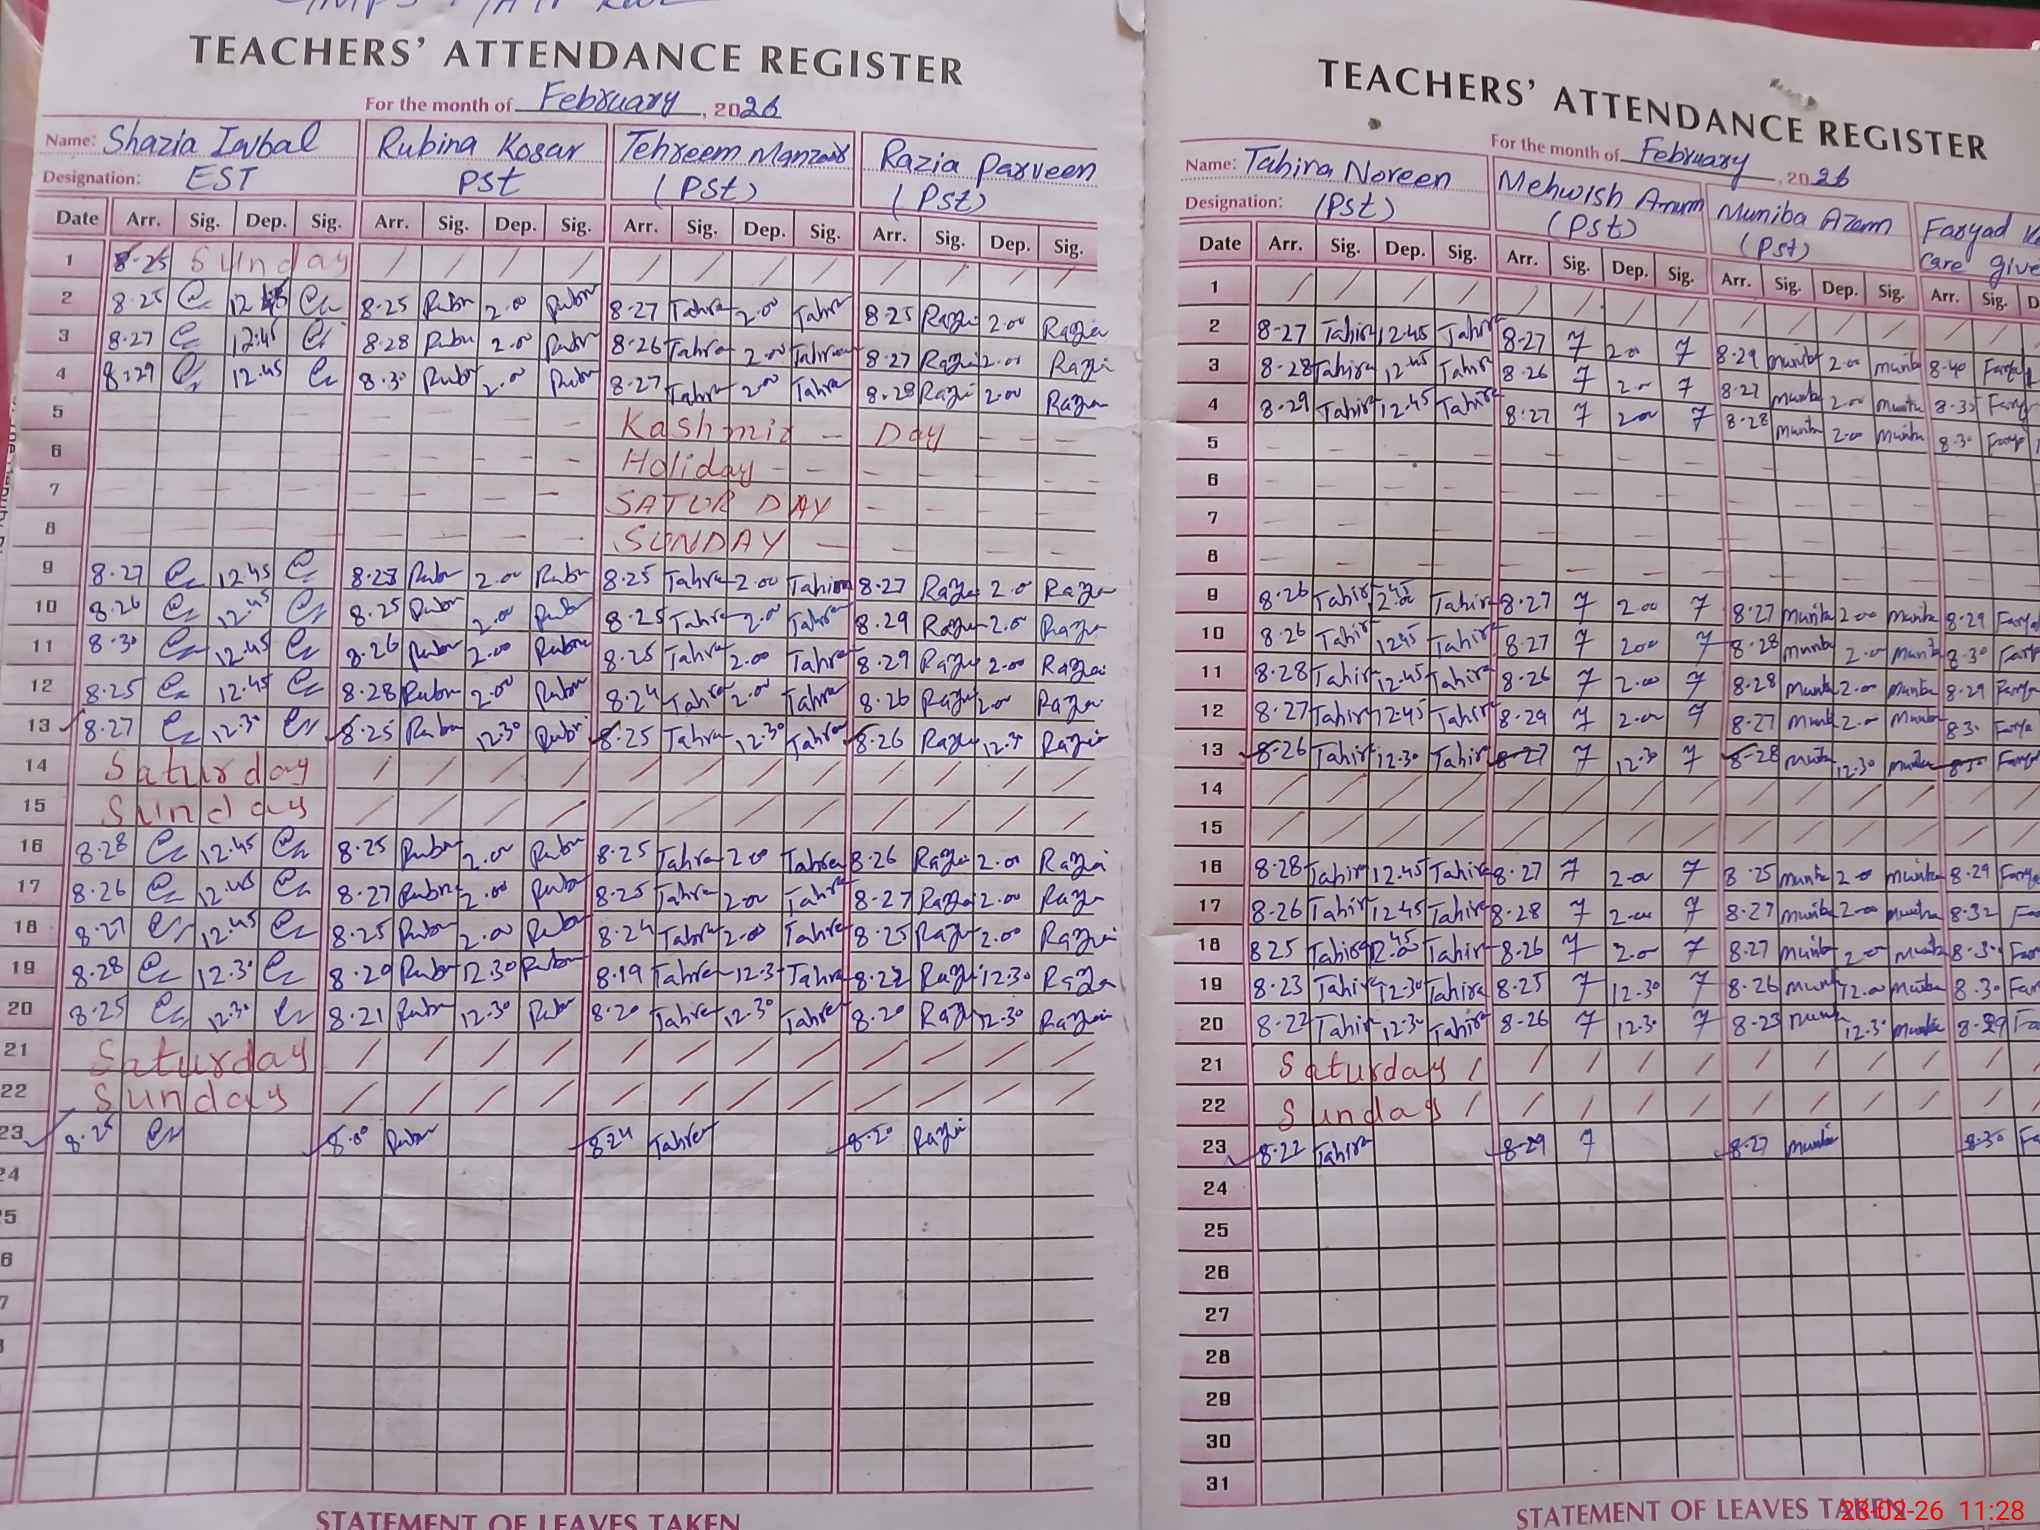 TEACHERS' ATTENDANCE REGISTER
For the month of February, 2026
Name: Shazia Iqbal Rubina Kosar Tehreem Manzoor Razia Parveen
Designation: EST PST (PST) (PST)
Date Arr. Sig. Dep. Sig. Arr. Sig. Dep. Sig. Arr. Sig. Dep. Sig. Arr. Sig. Dep. Sig.
1 8.25 Sunday
2 8.25 12.45 8.25 Rubn 2.00 Rubn 8.27 Tahre 2.00 Tahre 8.25 Razia 2.00 Razia
3 8.27 12.45 8.28 Rubn 2.00 Rubn 8.26 Tahre 2.00 Tahre 8.27 Razia 2.00 Razia
4 8.29 12.45 8.30 Rubn 2.00 Rubn 8.27 Tahre 2.00 Tahre 8.28 Razia 2.00 Razia
5 Kashmir Day
6 Holiday
7 SATURDAY
8 SUNDAY
9 8.27 12.45 8.27 Rubn 2.00 Rubn 8.25 Tahre 2.00 8.27 Razia 2.00 Razia
10 8.26 12.45 8.25 Rubn 2.00 Rubn 8.25 Tahre 2.00 Tahre 8.29 Razia 2.00 Razia
11 8.30 12.45 8.26 Rubn 2.00 Rubn 8.25 Tahre 2.00 Tahre 8.29 Razia 2.00 Razia
12 8.25 12.45 8.28 Rubn 2.00 Rubn 8.24 Tahre 2.00 Tahre 8.26 Razia 2.00 Razia
13 8.27 12.30 8.25 Rubn 12.30 Rubn 8.25 Tahre 12.30 Tahre 8.26 Razia 12.30 Razia
14 Saturday
15 Sunday
16 8.28 12.45 8.25 Rubn 2.00 Rubn 8.25 Tahre 2.00 Tahre 8.26 Razia 2.00 Razia
17 8.26 12.45 8.27 Rubn 2.00 Rubn 8.25 Tahre 2.00 Tahre 8.27 Razia 2.00 Razia
18 8.27 12.45 8.25 Rubn 2.00 Rubn 8.24 Tahre 2.00 Tahre 8.25 Razia 2.00 Razia
19 8.28 12.30 8.20 Rubn 12.30 Rubn 8.19 Tahre 12.3 Tahre 8.22 Razia 12.30 Razia
20 8.25 12.30 8.21 Rubn 12.30 Rubn 8.20 Tahre 12.30 Tahre 8.20 Razia 12.30 Razia
21 Saturday
22 Sunday
23 8.25 Rubn 8.24 Tahre 8.20 Razia
STATEMENT OF LEAVES TAKEN
TEACHERS' ATTENDANCE REGISTER
For the month of February, 2026
Name: Tahira Noreen Mehwish Muniba Azam Faryad
Designation: (PST) (PST) (PST) Care give
Date Arr. Sig. Dep. Sig. Arr. Sig. Dep. Sig. Arr. Sig. Dep. Sig. Arr. Sig. D
1
2 8.27 Tahira 12.45 Tahira 8.27 7 2.00 7 8.29 muniba 2.00 muniba 8.40 Farya
3 8.28 Tahira 12.45 Tahira 8.26 7 2.00 7 8.27 muniba 2.00 muniba 8.32 Farya
4 8.29 Tahira 12.45 Tahira 8.27 7 2.00 7 8.28 muniba 2.00 muniba 8.30 Farya
5
6
7
8
9 8.26 Tahira Tahira 8.27 7 2.00 7 8.27 muniba 2.00 muniba 8.29 Farya
10 8.26 Tahira 12.45 Tahira 8.27 7 2.00 7 8.28 muniba 2.00 muniba 8.30 Farya
11 8.28 Tahira 12.45 Tahira 8.26 7 2.00 7 8.28 muniba 2.00 muniba 8.29 Farya
12 8.27 Tahira 12.45 Tahira 8.29 7 2.00 7 8.27 muniba 2.00 muniba 8.30 Farya
13 8.26 Tahira 12.30 Tahira 8.27 7 12.30 7 8.28 muniba 12.30 muniba 8.30 Farya
14
15
16 8.28 Tahira 12.45 Tahira 8.27 7 2.00 7 8.25 muniba 2.00 muniba 8.29 Farya
17 8.26 Tahira 12.45 Tahira 8.28 7 2.00 7 8.27 muniba 2.00 muniba 8.32 Fa
18 8.25 Tahira Tahira 8.26 7 2.00 7 8.27 muniba 2.00 muniba 8.30 Far
19 8.23 Tahira 12.30 Tahira 8.25 7 12.30 7 8.26 muniba 12.00 muniba 8.30 Far
20 8.22 Tahira 12.30 Tahira 8.26 7 12.30 7 8.23 muniba 12.30 muniba 8.29 Fa
21 Saturday
22 Sunday
23 8.22 Tahira 8.29 7 8.27 muniba 8.30 Fa
24
25
26
27
28
29
30
31
STATEMENT OF LEAVES TAKEN
23-02-26 11:28